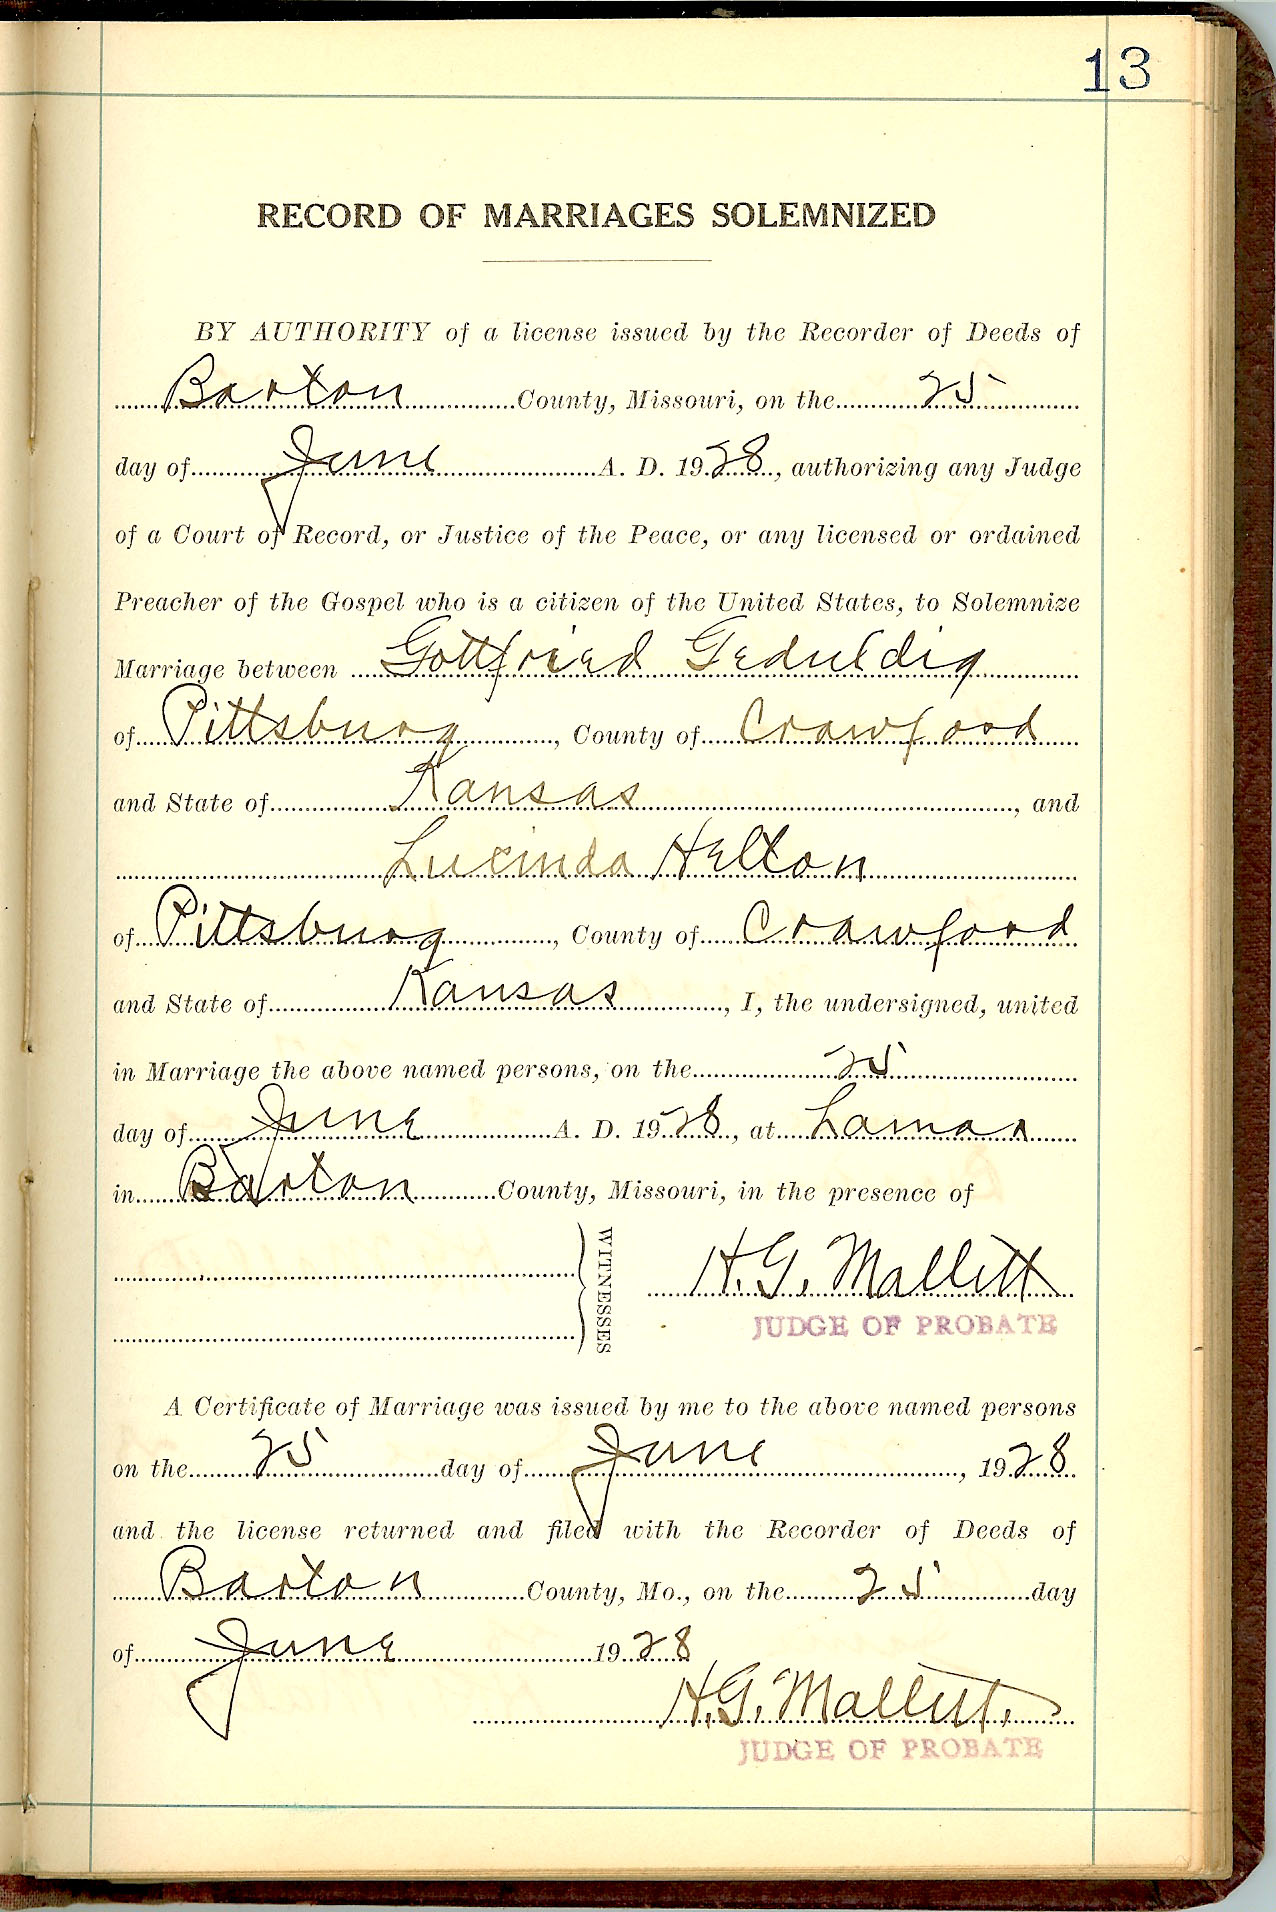 13
RECORD OF MARRIAGES SOLEMNIZED
BY AUTHORITY of a license issued by the Recorder of Deeds of
Barton County, Missouri, on the 25
day of June A. D. 1928, authorizing any Judge
of a Court of Record, or Justice of the Peace, or any licensed or ordained
Preacher of the Gospel who is a citizen of the United States, to Solemnize
Marriage between Gottfried Geduldig
of Pittsburg, County of Crawford
and State of Kansas, and
Lucinda Helton
of Pittsburg, County of Crawford
and State of Kansas, I, the undersigned, united
in Marriage the above named persons, on the 25
day of June A. D. 1928, at Lamar
in Barton County, Missouri, in the presence of
WITNESSES
H. G. Mallett
JUDGE OF PROBATE
A Certificate of Marriage was issued by me to the above named persons
on the 25 day of June, 1928
and the license returned and filed with the Recorder of Deeds of
Barton County, Mo., on the 25 day
of June 1928
H. G. Mallett.
JUDGE OF PROBATE